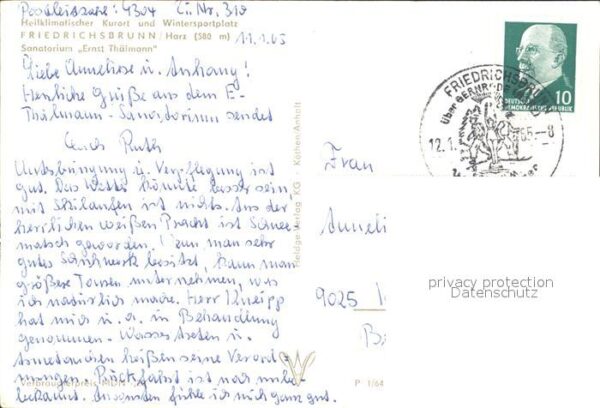 Postleitzahl: 4304 Zi. Nr. 319
Heilklimatischer Kurort und Wintersportplatz
FRIEDRICHSBRUNN/Harz (580 m)
11.1.65
Sanatorium „Ernst Thälmann“
Liebe Anneliese u. Anhang!
Herzliche Grüße aus dem E-
Thälmann-Sanatorium sendet
Euch Ruth
Unterbringung u. Verpflegung ist
gut. Das Wetter könnte besser sein,
mit Skilaufen ist nichts. Aus der
herrlichen weißen Pracht ist Schnee-
matsch geworden. Wenn man sehr
gutes Schuhwerk besitzt, kann man
größere Touren unternehmen, was
ich natürlich mache. Herr Kneipp
hat mich u. a. in Behandlung
genommen. Wassertreten u.
heißen seine Verord-
nungen. Rückfahrt ist noch unbe-
kannt. Ansonsten fühle ich mich ganz gut.
Verbraucherpreis MDN
Heldge-Verlag KG · Köthen/Anhalt
P 1/64
FRIEDRICHSBRUNN
über GERNRODE
12.1.65.-8
DEUTSCHE
DEMOKRATISCHE REPUBLIK
10
Frau
Anneli
9025
privacy protection
Datenschutz